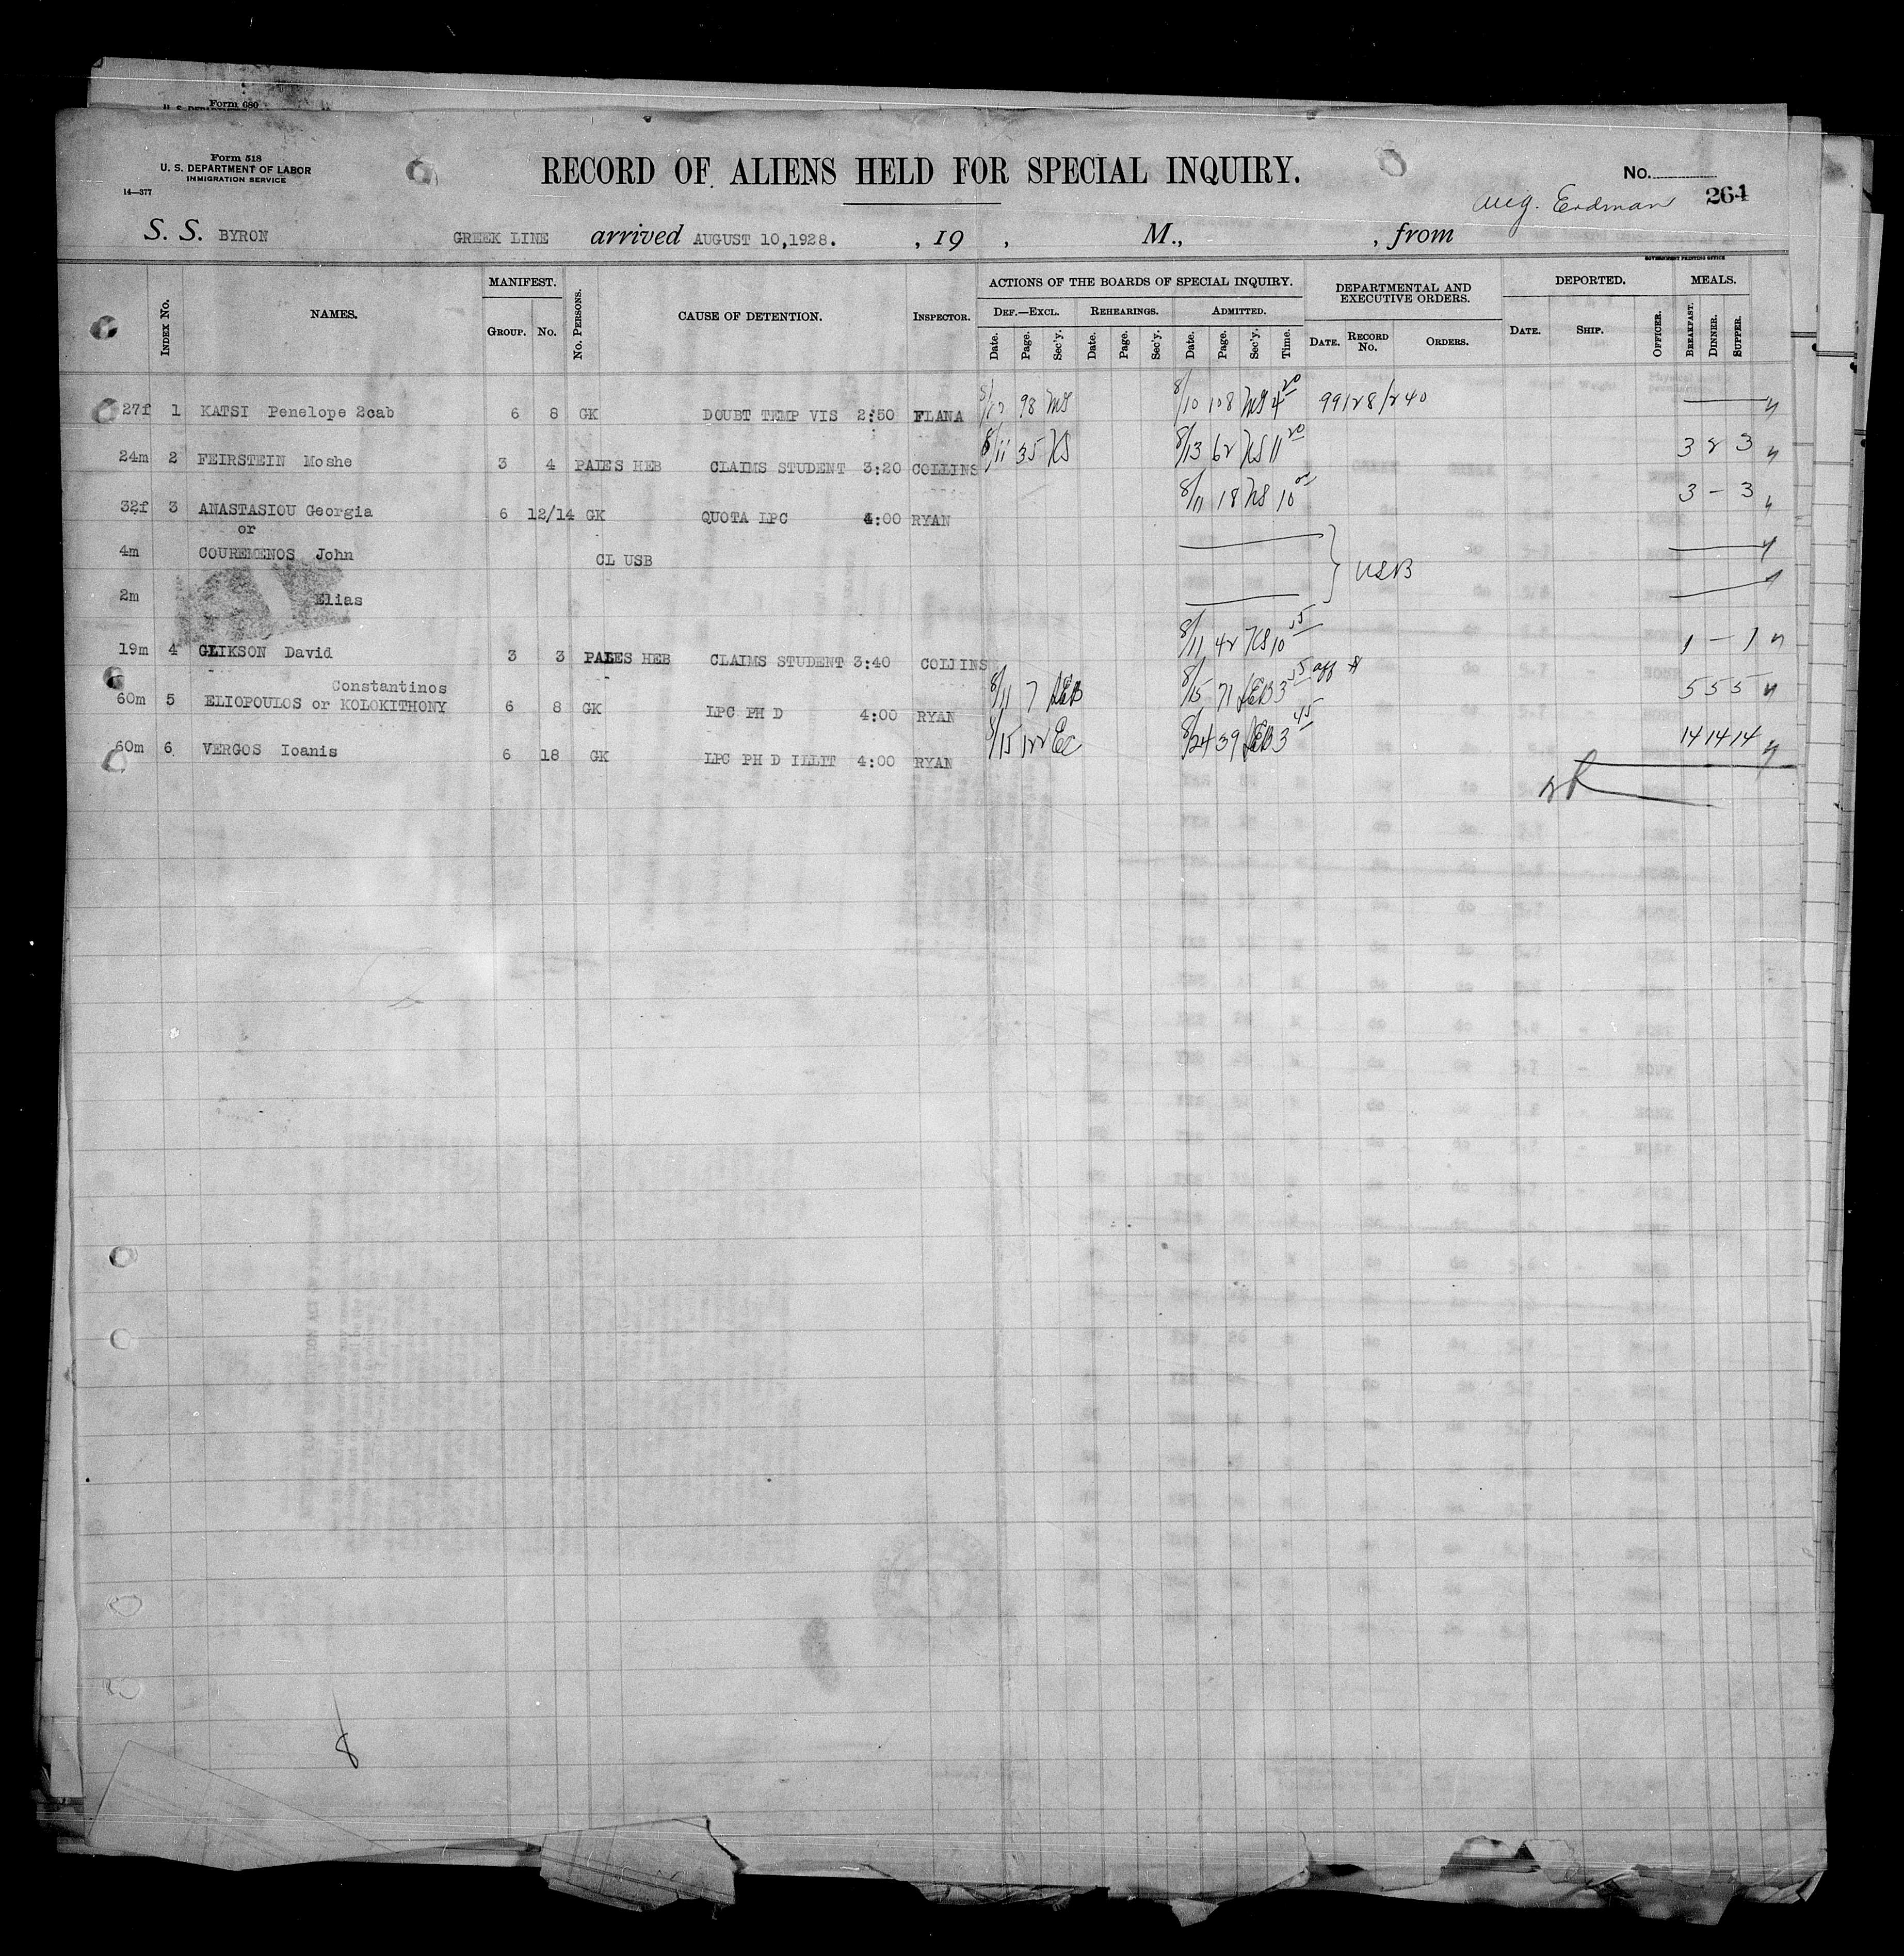 Form 680
Form 518
U. S. DEPARTMENT OF LABOR
IMMIGRATION SERVICE
14—377
RECORD OF ALIENS HELD FOR SPECIAL INQUIRY.
No.
264
Aug. Erdman
S. S. BYRON GREEK LINE arrived AUGUST 10,1928. , 19 , M., , from
GOVERNMENT PRINTING OFFICE
Index No. NAMES. MANIFEST. Group. No. No. Persons. CAUSE OF DETENTION. Inspector. ACTIONS OF THE BOARDS OF SPECIAL INQUIRY. DEPARTMENTAL AND EXECUTIVE ORDERS. DEPORTED. MEALS.
Def.—Excl. Rehearings. Admitted.
Date. Page. Sec'y. Date. Page. Sec'y. Date. Page. Sec'y. Time. Date. Record No. Orders. Date. Ship. Officer. Breakfast. Dinner. Supper.
27f 1 KATSI Penelope 2cab 6 8 GK DOUBT TEMP VIS 2:50 FLANA 98 8/10 108 4 20 99128/240
24m 2 FEIRSTEIN Moshe 3 4 PALES HEB CLAIMS STUDENT 3:20 COLLINS 8/11 35 KS 8/13 62 KS 11 20 3 2 3
32f 3 ANASTASIOU Georgia 6 12/14 GK QUOTA LPC 4:00 RYAN 8/11 18 KS 10 3 – 3
or
4m COUREMENOS John CL USB USB
2m Elias
19m 4 GLIKSON David 3 3 PALES HEB CLAIMS STUDENT 3:40 COLLINS 8/11 42 KS 10 55 1 – 1
Constantinos
60m 5 ELIOPOULOS or KOLOKITHONY 6 8 GK LPC PH D 4:00 RYAN 8/11 7 8/15 71 3 55 aff 5 5 5
60m 6 VERGOS Ioanis 6 18 GK LPC PH D ILLIT 4:00 RYAN 8/15 122 EC 8/24 39 3 45 14 14 14
8